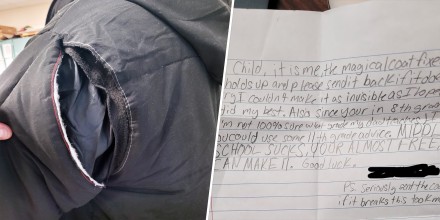 Child, it is me, the magical coat fixe
holds up and please send it back if it do
ry I couldn't make it as invisible as I hope
did my best. Also since your in 8th grad
I'm not 100% sure what grade
could use some little more advice. MIDD
SCHOOL SUCKS, YOUR ALMOST FREE
AN MAKE IT. Good luck.
P.S. Seriously
if it breaks this took m